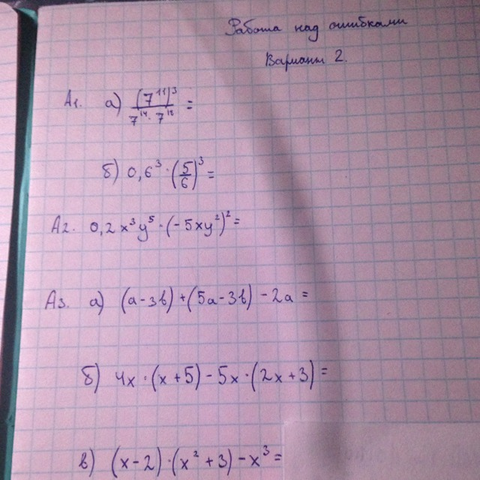 Работа над ошибками
Вариант 2.
А1. а) (7¹¹)³ / 7¹⁴ · 7¹⁸ =
б) 0,6³ · (5/6)³ =
А2. 0,2x³y⁵ · (-5xy²)² =
А3. а) (a-3b)+(5a-3b)-2a =
б) 4x · (x+5) - 5x · (2x+3) =
в) (x-2) · (x²+3) - x³ =